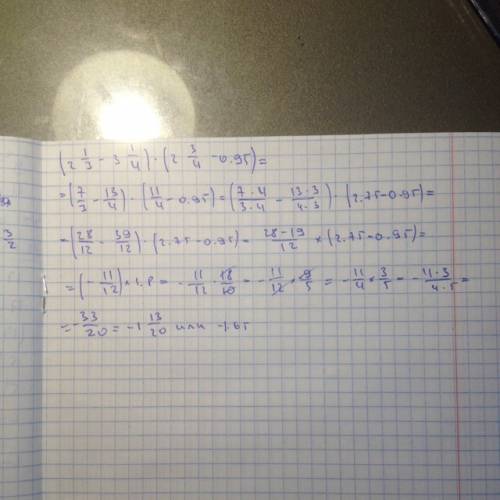 (2 1/3 - 3 1/4) · (2 3/4 - 0.95) =
= (7/3 - 13/4) · (11/4 - 0.95) = (7·4/3·4 - 13·3/4·3) · (2.75 - 0.95) =
3/2
= (28/12 - 39/12) · (2.75 - 0.95) = 28-19/12 × (2.75 - 0.95) =
= (-11/12) × 1.8 = -11/12 · 18/10 = -11/12 × 9/5 = -11/4 × 3/5 = -11·3/4·5 =
= -33/20 = -1 13/20 или -1.65